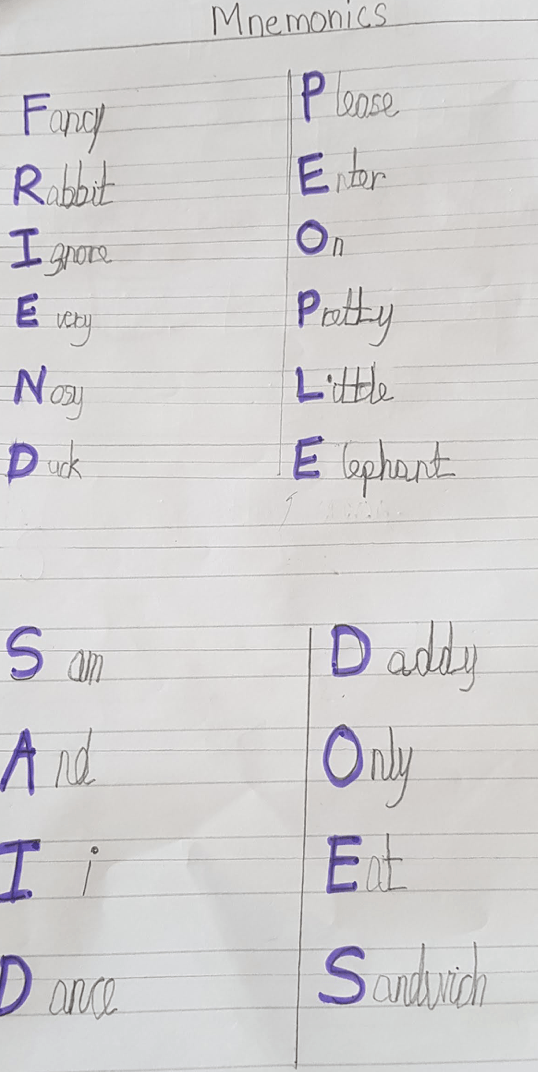 Mnemonics
Fancy
Rabbit
Ignore
Every
Nosy
Duck
Please
Enter
On
Pretty
Little
Elephant
Sam
And
I i
Dance
Daddy
Only
Eat
Sandwich